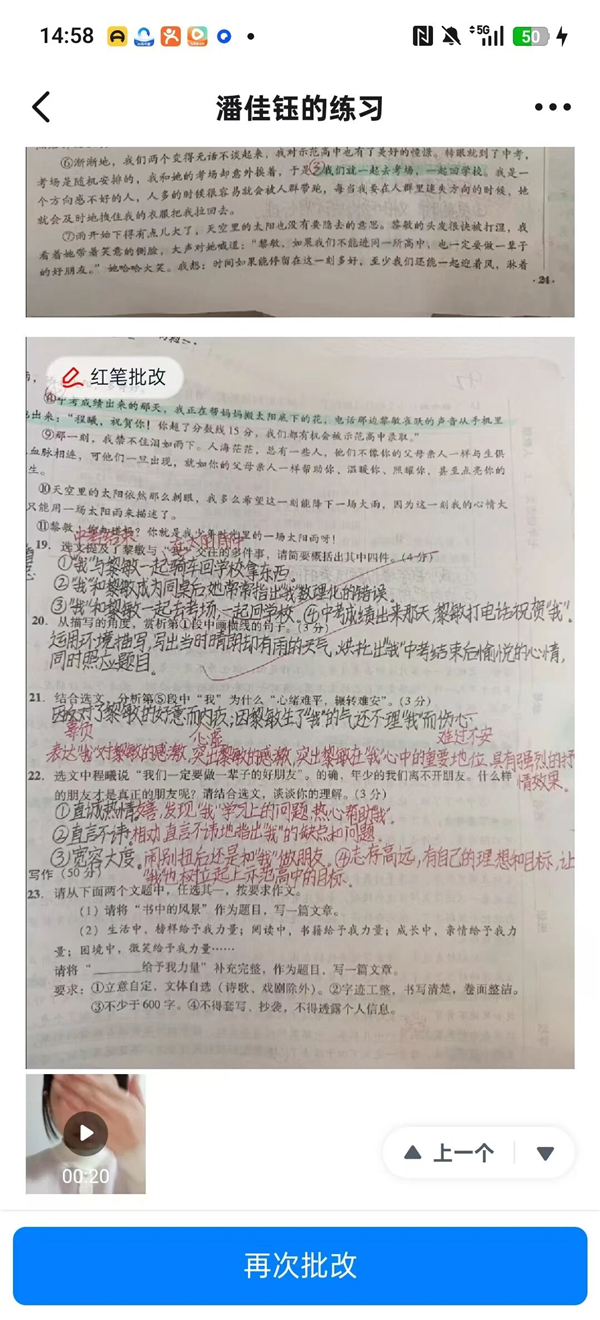 14:58
5G
50
潘佳钰的练习
⑥渐渐地，我们两个变得无话不谈起来，我对示范高中也有了美好的憧憬。转眼就到了中考，
考场是随机安排的，我和她的考场却意外挨着，于是③我们就一起去考场，一起回学校。我是一
个方向感不好的人，人多的时候很容易就会被人群带跑，每当我要在人群里迷失方向的时候，她
就会及时地拽住我的衣服把我拉回去。
⑦雨开始下得有点儿大了，天空里的太阳也没有要隐去的意思。黎敏的头发很快被打湿，我
看着她带着笑意的侧脸，大声对她喊道：“黎敏，如果我们不能进同一所高中，也一定要做一辈子
的好朋友。”她哈哈大笑。我想：时间如果能停留在这一刻多好，至少我们还能一起迎着风，淋着
·24·
红笔批改
⑧中考成绩出来的那天，我正在帮妈妈搬太阳底下的花，电话那边黎敏雀跃的声音从手机里
出来：“程曦，祝贺你！你超了分数线15分，我们都有机会被示范高中录取。”
⑨那一刻，我禁不住泪如雨下。人海茫茫，总有一些人，他们不像你的父母亲人一样与生俱
血脉相连，可他们一旦出现，就如你的父母亲人一样帮助你、温暖你、照耀你，甚至点亮你的
生。
⑩天空里的太阳依然那么刺眼，我多么希望这一刻能降下一场大雨，因为这一刻我的心情大
只能用一场太阳雨来描述了。
⑪黎敏，你知道吗？你就是我少年时光里的一场太阳雨呀！
中考结束
19. 选文提及了黎敏与“我”交往的多件事，请简要概括出其中四件。(4分)
①“我”与黎敏一起骑车回学校拿东西。
②“我”和黎敏成为同桌后，她常常指出“我”数理化的错误。
③“我”和黎敏一起去考场，一起回学校。④中考成绩出来那天，黎敏打电话祝贺“我”。
20. 从描写的角度，赏析第①段中画横线的句子。(3分)
运用环境描写，写出当时晴朗却有雨的天气，烘托出“我”中考结束后愉悦的心情，
同时照应题目。
21. 结合选文，分析第⑤段中“我”为什么“心绪难平，辗转难安”。(3分)
因辜对了黎敏的好意而内疚；因黎敏生了“我”的气还不理“我”而伤心。
辜负
心虚
难过不安
表达“我”对黎敏的感激，突出黎敏的感激，突出黎敏在“我”心中的重要地位，具有强烈的抒
情效果。
22. 选文中程曦说“我们一定要做一辈子的好朋友”。的确，年少的我们离不开朋友。什么样
的朋友才是真正的朋友呢？请结合选文，谈谈你的理解。(3分)
①真诚热情友善，发现“我”学习上的问题，热心帮助我。
②直言不讳。相对直言不讳地指出“我”的缺点和问题。
③宽容大度。闹别扭后还是和“我”做朋友。④志存高远，有自己的理想和目标，让
“我”也树立起上示范高中的目标。
写作(50分)
23. 请从下面两个文题中，任选其一，按要求作文。
(1) 请将“书中的风景”作为题目，写一篇文章。
(2) 生活中，榜样给予我力量；阅读中，书籍给予我力量；成长中，亲情给予我力
量；困境中，微笑给予我力量……
请将“______给予我力量”补充完整，作为题目，写一篇文章。
要求：①立意自定，文体自选（诗歌、戏剧除外）。②字迹工整，书写清楚，卷面整洁。
③不少于600字。④不得套写、抄袭，不得透露个人信息。
00:20
上一个
再次批改